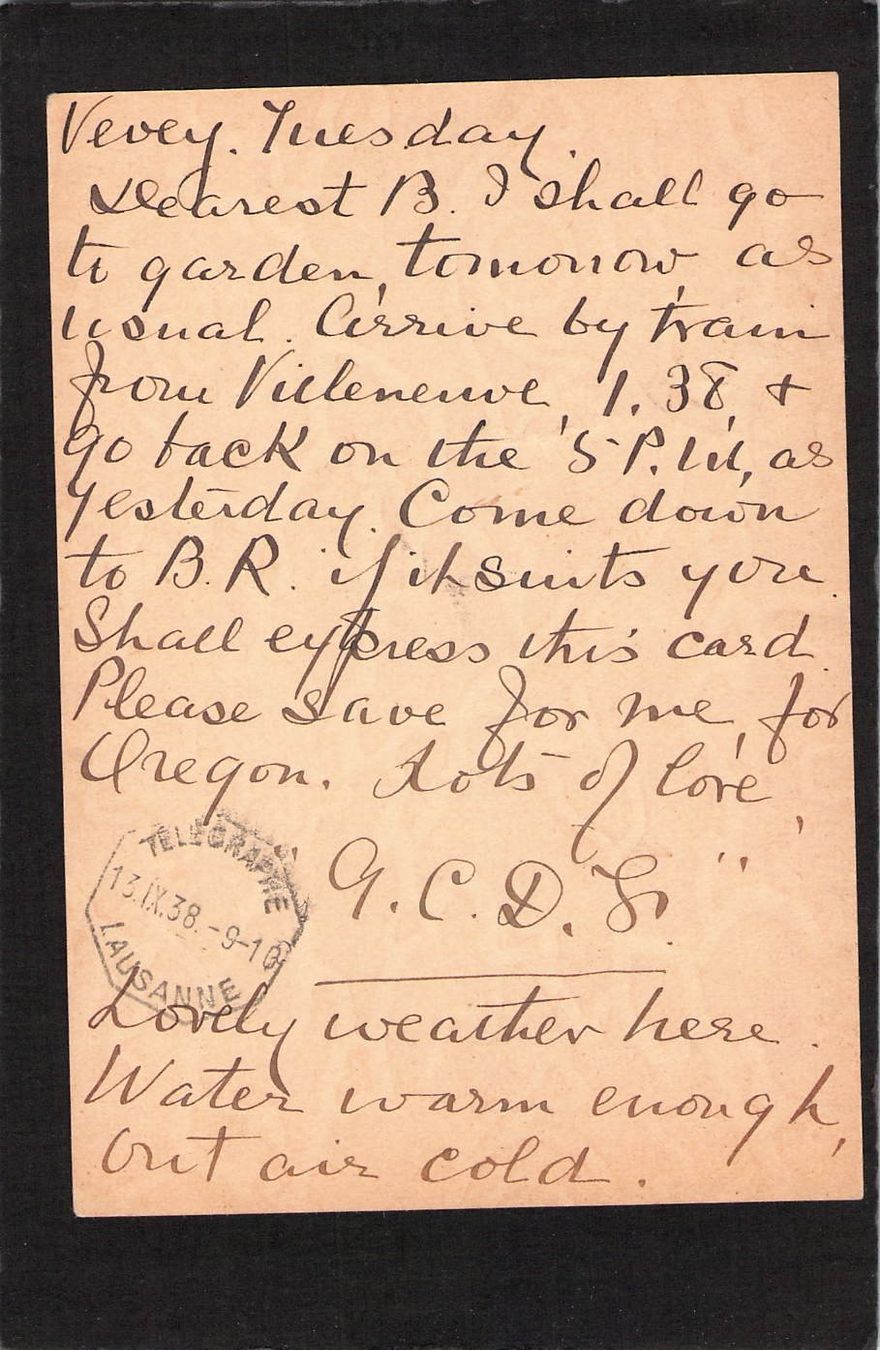 Vevey. Tuesday.
Dearest B. I shall go
to garden, tomorrow, as
usual. Arrive by train
from Villeneuve, 1.38, &
go back on the 5 P.M, as
yesterday. Come down
to B.R. if it suits you.
Shall express this card.
Please save for me, for
Oregon. Lots of love,
TÉLÉGRAPHE
13.IX.38.-9-10
LAUSANNE
"G.C.D.
Lovely weather here.
Water warm enough,
but air cold.